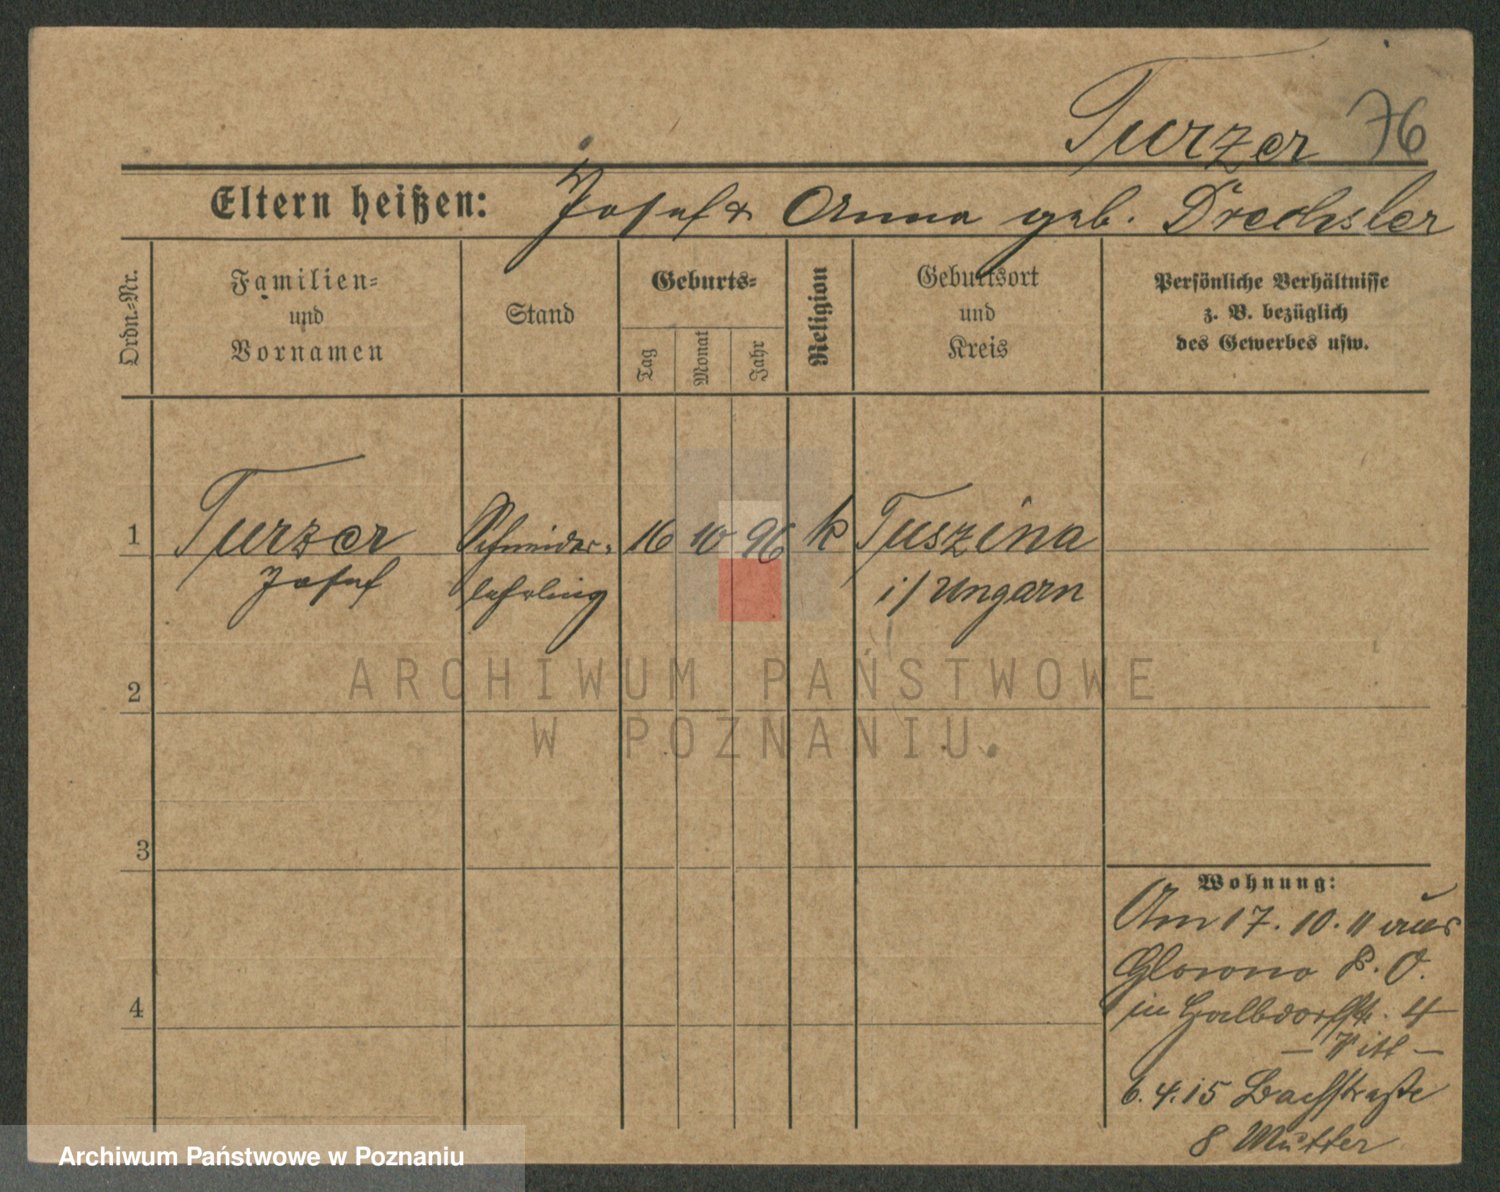 Turzer 76
Eltern heißen: Josef & Anna geb. Drechsler
Ordn.-Nr.
Familien-
und
Vornamen
Stand
Geburts-
Tag
Monat
Jahr
Religion
Geburtsort
und
Kreis
Persönliche Verhältnisse
z. B. bezüglich
des Gewerbes usw.
1 Turzer Schneider- 16 10 96 k Tuszina
Josef lehrling i/Ungarn
2
3
4
Wohnung:
Am 17. 10. 11 aus
Glowno P. O.
in Halbdorfstr. 4
6. 4. 15 Bachstraße
8 Mutter
ARCHIWUM PAŃSTWOWE
W POZNANIU.
Archiwum Państwowe w Poznaniu